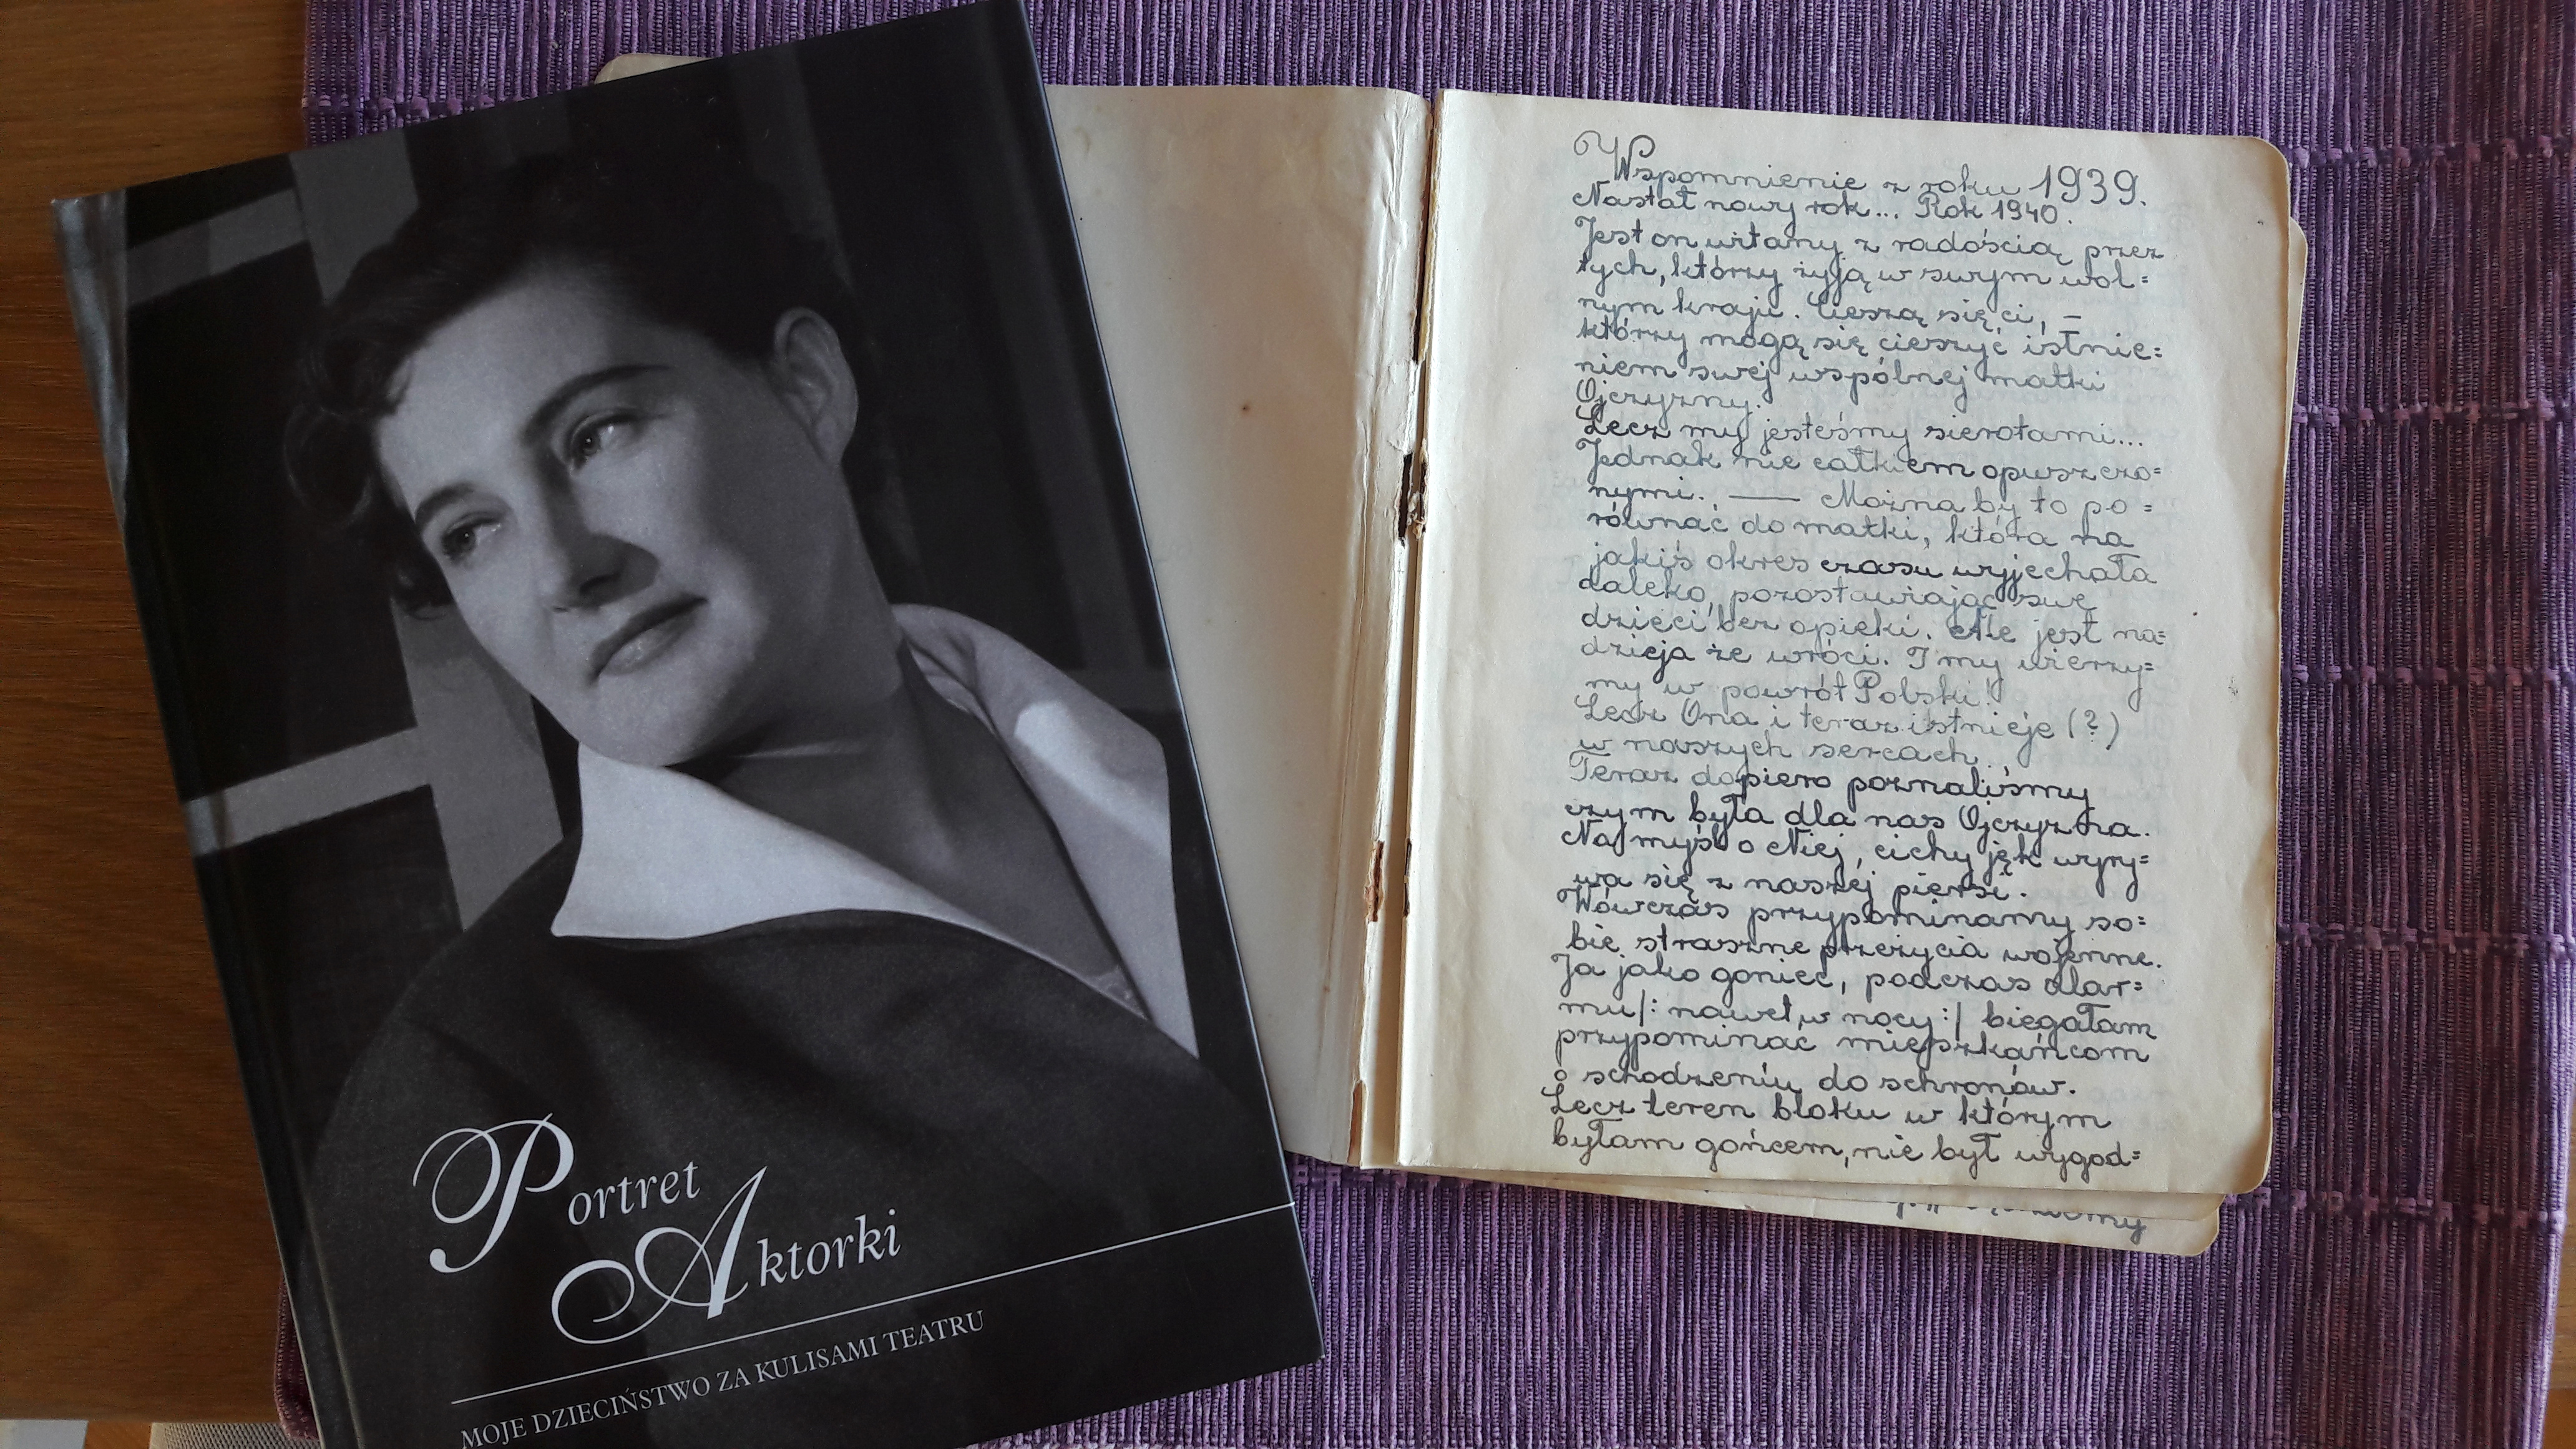 Portret
Aktorki
MOJE DZIECIŃSTWO ZA KULISAMI TEATRU
Wspomnienie z roku 1939.
Nastał nowy rok... Rok 1940.
Jest on witany z radością przez
tych, którzy żyją w swym wol=
nym kraju. Cieszą się ci, –
którzy mogą się cieszyć istnie=
niem swej wspólnej matki
Ojczyzny.
Lecz my jesteśmy sierotami...
Jednak nie całkiem opuszczo=
nymi. — Można by to po=
równać do matki, która na
jakiś okres czasu wyjechała
daleko, pozostawiając swe
dzieci bez opieki. Ale jest na=
dzieja że wróci. I my wierzy=
my w powrót Polski!
Lecz Ona i teraz istnieje (?)
w naszych sercach.
Teraz dopiero poznaliśmy
czym była dla nas Ojczyzna.
Na myśl o Niej, cichy jęk wyry=
wa się z naszej piersi.
Wówczas przypominamy so=
bie straszne przeżycia wojenne.
Ja jako goniec, podczas alar=
mu /: nawet w nocy :/ biegałam
przypominać mieszkańcom
o schodzeniu do schronów.
Lecz teren bloku w którym
byłam gońcem, nie był wygod=